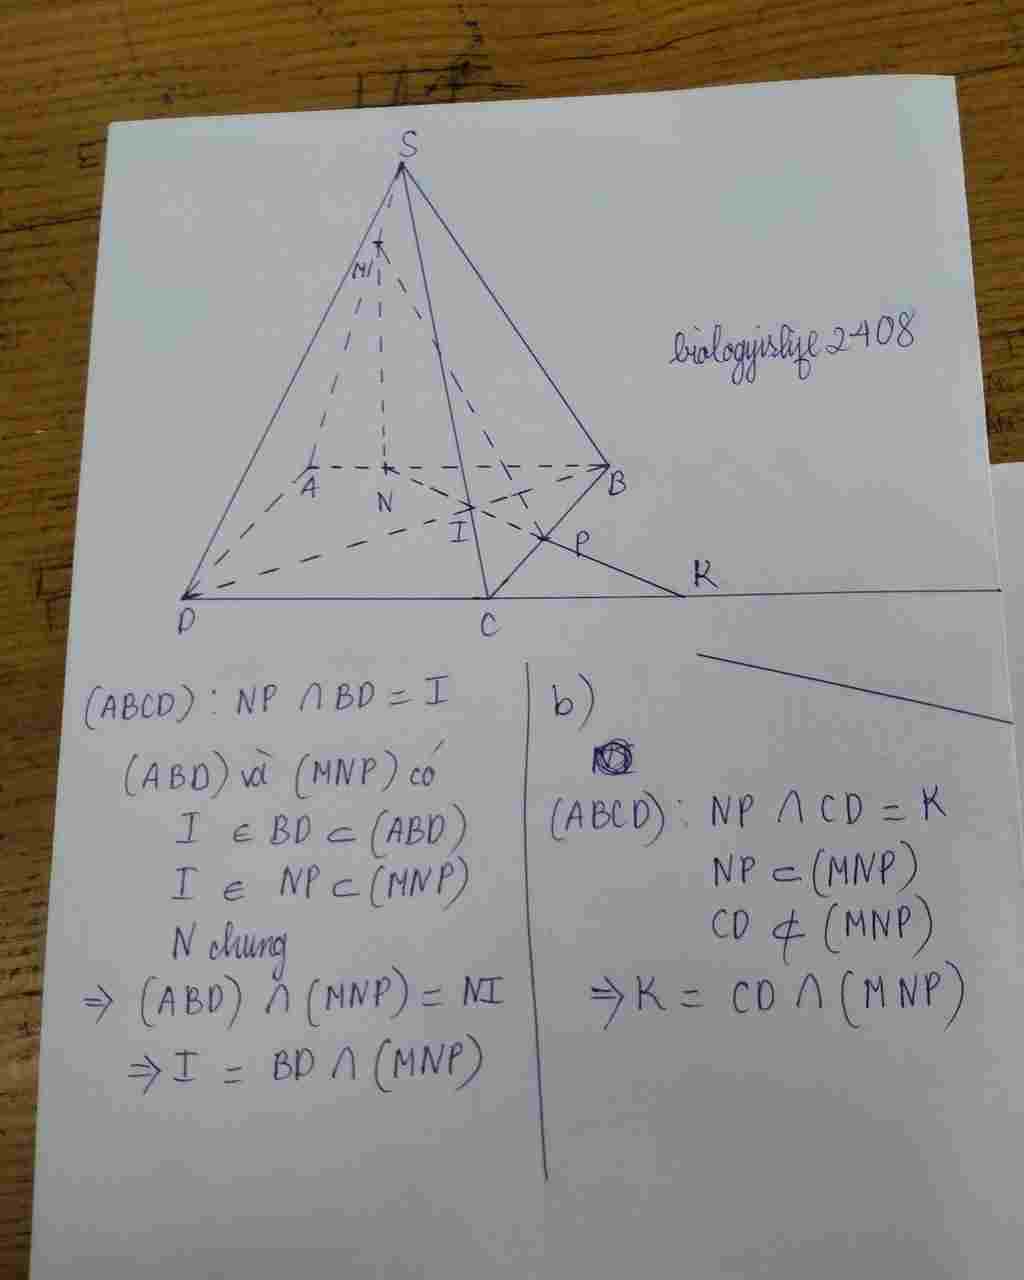 S
M
biologyislife2408
A
N
B
I
P
K
D
C
(ABCD): NP ∩ BD = I
(ABD) và (MNP) có
I ∈ BD ⊂ (ABD)
I ∈ NP ⊂ (MNP)
N chung
⇒ (ABD) ∩ (MNP) = NI
⇒ I = BD ∩ (MNP)
b)
(ABCD): NP ∩ CD = K
NP ⊂ (MNP)
CD ⊄ (MNP)
⇒ K = CD ∩ (MNP)